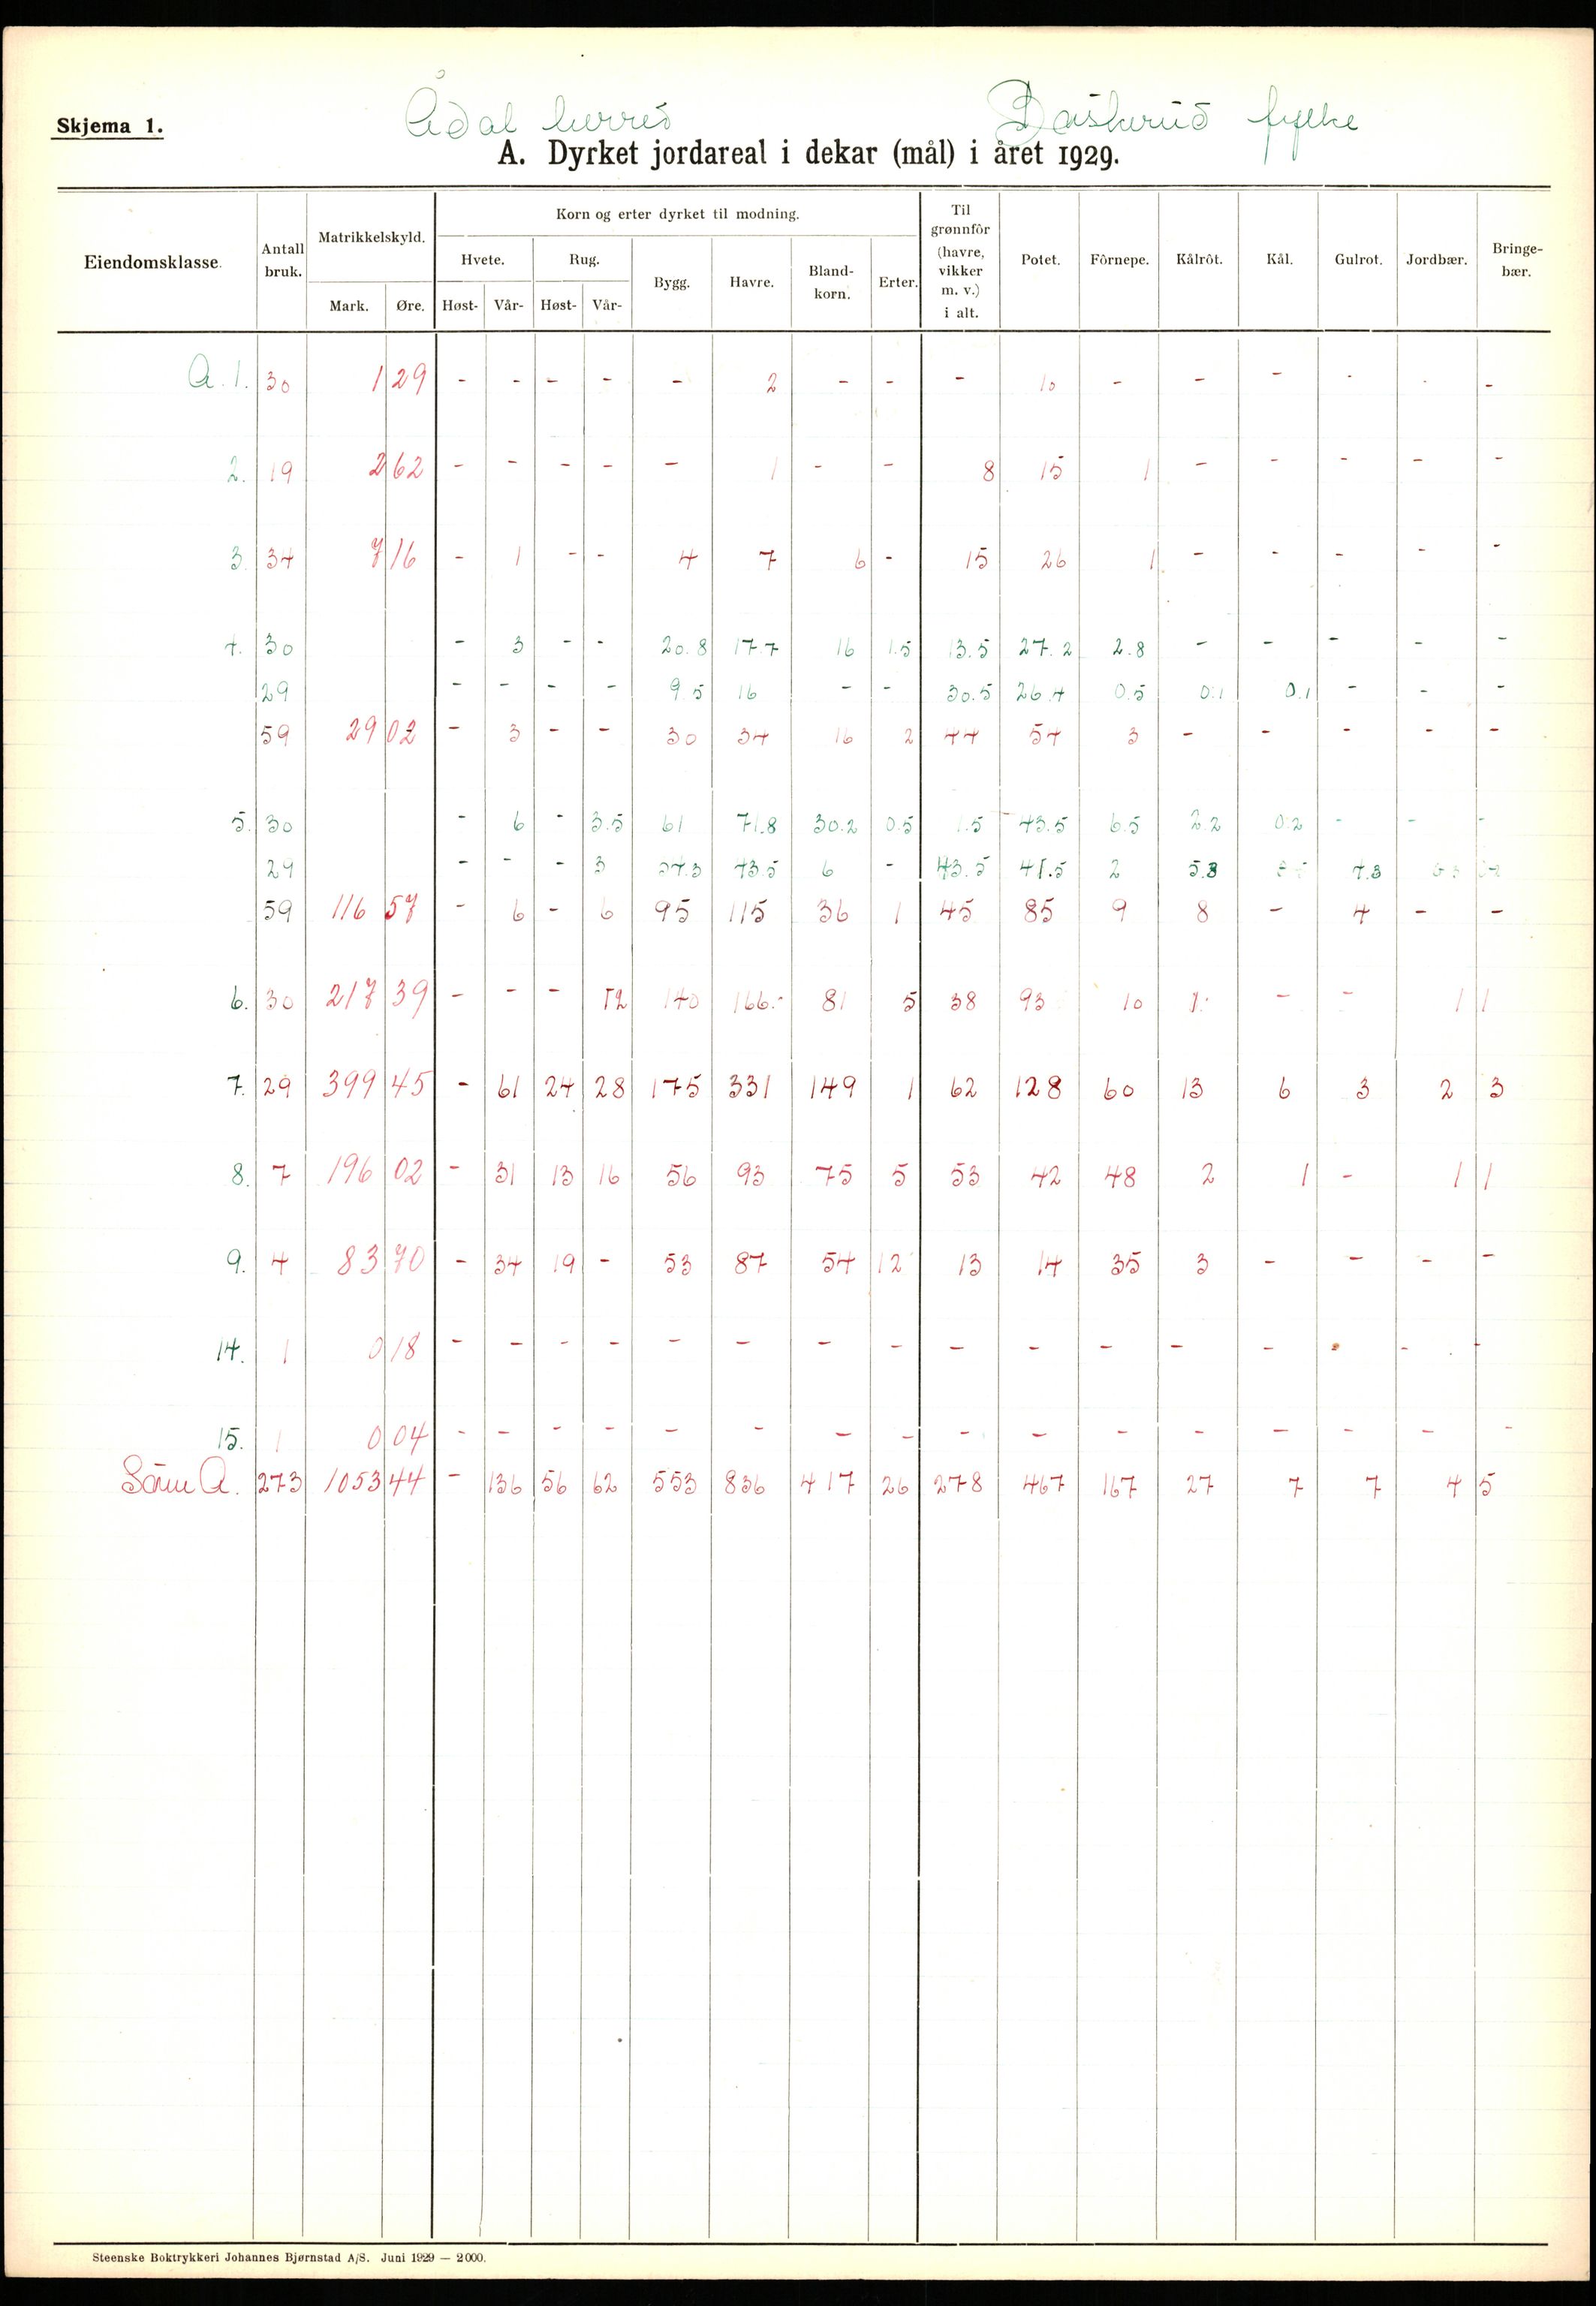 Ådal herred Buskerud fylke
Skjema 1.
A. Dyrket jordareal i dekar (mål) i året 1929.
Eiendomsklasse. Antall bruk. Matrikkelskyld. Mark. Øre. Korn og erter dyrket til modning. Hvete. Høst- Vår- Rug. Høst- Vår- Bygg. Havre. Bland-korn. Erter. Til grønnfôr (havre, vikker m. v.) i alt. Potet. Fôrnepe. Kålrôt. Kål. Gulrot. Jordbær. Bringe-bær.
A. 1. 30 1 29 - - - - - 2 - - - 10 - - - - - -
2. 19 2 62 - - - - - 1 - - 8 15 1 - - - - -
3. 34 7 16 - 1 - - 4 7 6 - 15 26 1 - - - - -
4. 30 - 3 - - 20.8 17.7 16 1.5 13.5 27.2 2.8 - - - - -
29 - - - - 9.5 16 - - 30.5 26.4 0.5 0.1 0.1 - - -
59 29 02 - 3 - - 30 34 16 2 44 54 3 - - - - -
5. 30 - 6 - 3.5 61 71.8 30.2 0.5 1.5 43.5 6.5 2.2 0.2 - - -
29 - - - 3 43.5 6 - 43.5 41.5 2 5.3 4.3
59 116 57 - 6 - 6 95 115 36 1 45 85 9 8 - 4 - -
6. 30 217 39 - - - 12 140 166 81 5 38 93 10 1 - - 1 1
7. 29 399 45 - 61 24 28 175 331 149 1 62 128 60 13 6 3 2 3
8. 7 196 02 - 31 13 16 56 93 75 5 53 42 48 2 1 - 1 1
9. 4 83 70 - 34 19 - 53 87 54 12 13 14 35 3 - - - -
14. 1 0 18 - - - - - - - - - - - - - - - -
15. 1 0 04 - - - - - - - - - - - - - - - -
Sum A. 273 1053 44 - 136 56 62 553 836 417 26 278 467 167 27 7 7 4 5
Steenske Boktrykkeri Johannes Bjørnstad A/S. Juni 1929 — 2000.